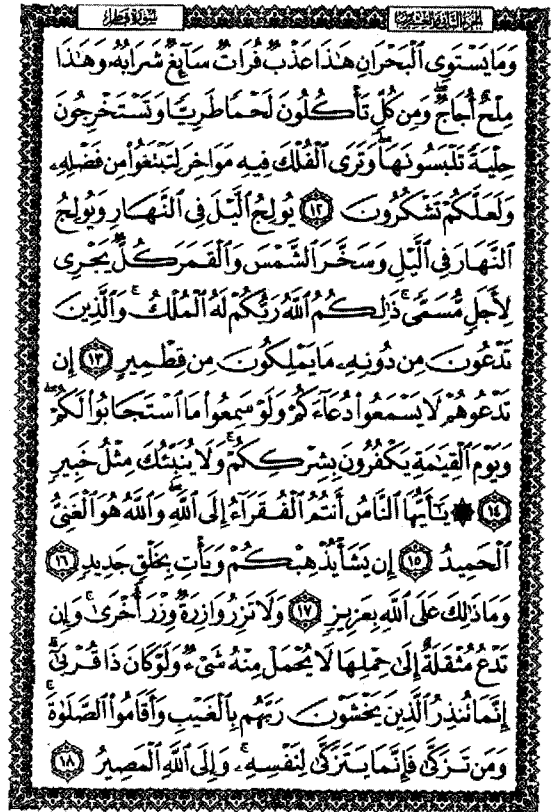 سُورَةُ فَاطِرٍ الجُزءُ الثَّانِي وَالعِشرُونَ
وَمَا يَسْتَوِى ٱلْبَحْرَانِ هَٰذَا عَذْبٌ فُرَاتٌ سَآئِغٌ شَرَابُهُۥ وَهَٰذَا
مِلْحٌ أُجَاجٌ ۖ وَمِن كُلٍّ تَأْكُلُونَ لَحْمًا طَرِيًّا وَتَسْتَخْرِجُونَ
حِلْيَةً تَلْبَسُونَهَا ۖ وَتَرَى ٱلْفُلْكَ فِيهِ مَوَاخِرَ لِتَبْتَغُوا۟ مِن فَضْلِهِۦ
وَلَعَلَّكُمْ تَشْكُرُونَ ﴿١٢﴾ يُولِجُ ٱلَّيْلَ فِى ٱلنَّهَارِ وَيُولِجُ
ٱلنَّهَارَ فِى ٱلَّيْلِ وَسَخَّرَ ٱلشَّمْسَ وَٱلْقَمَرَ كُلٌّ يَجْرِى
لِأَجَلٍ مُّسَمًّى ۚ ذَٰلِكُمُ ٱللَّهُ رَبُّكُمْ لَهُ ٱلْمُلْكُ ۚ وَٱلَّذِينَ
تَدْعُونَ مِن دُونِهِۦ مَا يَمْلِكُونَ مِن قِطْمِيرٍ ﴿١٣﴾ إِن
تَدْعُوهُمْ لَا يَسْمَعُوا۟ دُعَآءَكُمْ وَلَوْ سَمِعُوا۟ مَا ٱسْتَجَابُوا۟ لَكُمْ ۖ
وَيَوْمَ ٱلْقِيَٰمَةِ يَكْفُرُونَ بِشِرْكِكُمْ ۚ وَلَا يُنَبِّئُكَ مِثْلُ خَبِيرٍ
﴿١٤﴾ ۞ يَٰٓأَيُّهَا ٱلنَّاسُ أَنتُمُ ٱلْفُقَرَآءُ إِلَى ٱللَّهِ ۖ وَٱللَّهُ هُوَ ٱلْغَنِىُّ
ٱلْحَمِيدُ ﴿١٥﴾ إِن يَشَأْ يُذْهِبْكُمْ وَيَأْتِ بِخَلْقٍ جَدِيدٍ ﴿١٦﴾
وَمَا ذَٰلِكَ عَلَى ٱللَّهِ بِعَزِيزٍ ﴿١٧﴾ وَلَا تَزِرُ وَازِرَةٌ وِزْرَ أُخْرَىٰ ۚ وَإِن
تَدْعُ مُثْقَلَةٌ إِلَىٰ حِمْلِهَا لَا يُحْمَلْ مِنْهُ شَىْءٌ وَلَوْ كَانَ ذَا قُرْبَىٰٓ ۗ
إِنَّمَا تُنذِرُ ٱلَّذِينَ يَخْشَوْنَ رَبَّهُم بِٱلْغَيْبِ وَأَقَامُوا۟ ٱلصَّلَوٰةَ ۚ
وَمَن تَزَكَّىٰ فَإِنَّمَا يَتَزَكَّىٰ لِنَفْسِهِۦ ۚ وَإِلَى ٱللَّهِ ٱلْمَصِيرُ ﴿١٨﴾